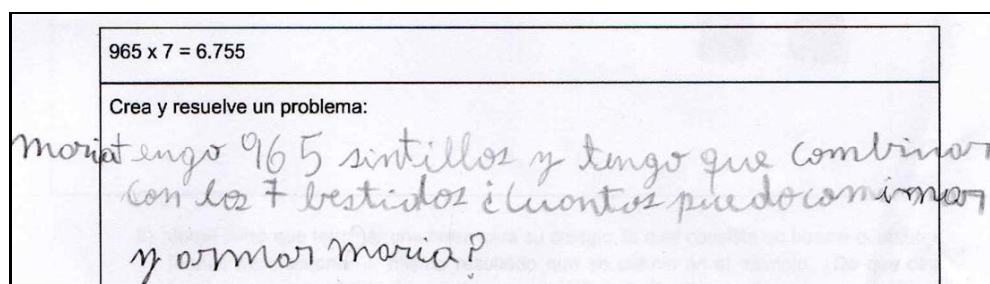 965 x 7 = 6.755
Crea y resuelve un problema:
maria tengo 965 sintillos y tengo que combinar
con los 7 bestidos ¿cuontos puedo comimar
y armar maria?